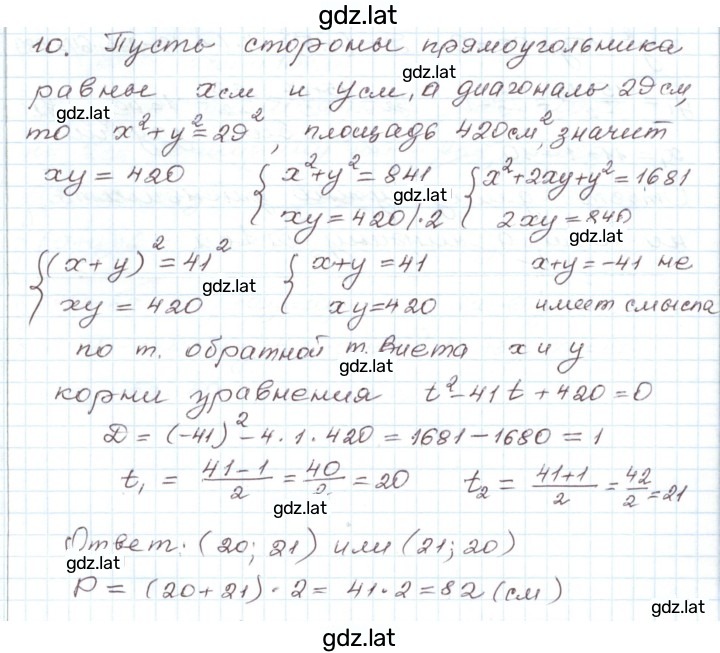 gdz.lat
10. Пусть стороны прямоугольника
gdz.lat
равны x см и y см, а диагональ 29 см,
gdz.lat
то x² + y² = 29², площадь 420 см², значит
xy = 420 { x² + y² = 841 { x² + 2xy + y² = 1681
gdz.lat
xy = 420 |·2 2xy = 840
gdz.lat
{ (x + y)² = 41² { x + y = 41 x + y = -41 не
gdz.lat
xy = 420 xy = 420 имеет смысла
по т. обратной т. Виета x и y
gdz.lat
корни уравнения t² - 41t + 420 = 0
D = (-41)² - 4 · 1 · 420 = 1681 - 1680 = 1
t₁ = (41 - 1)/2 = 40/2 = 20 t₂ = (41+1)/2 = 42/2 = 21
gdz.lat
Ответ: (20; 21) или (21; 20)
gdz.lat
P = (20 + 21) · 2 = 41 · 2 = 82 (см)
gdz.lat
gdz.lat